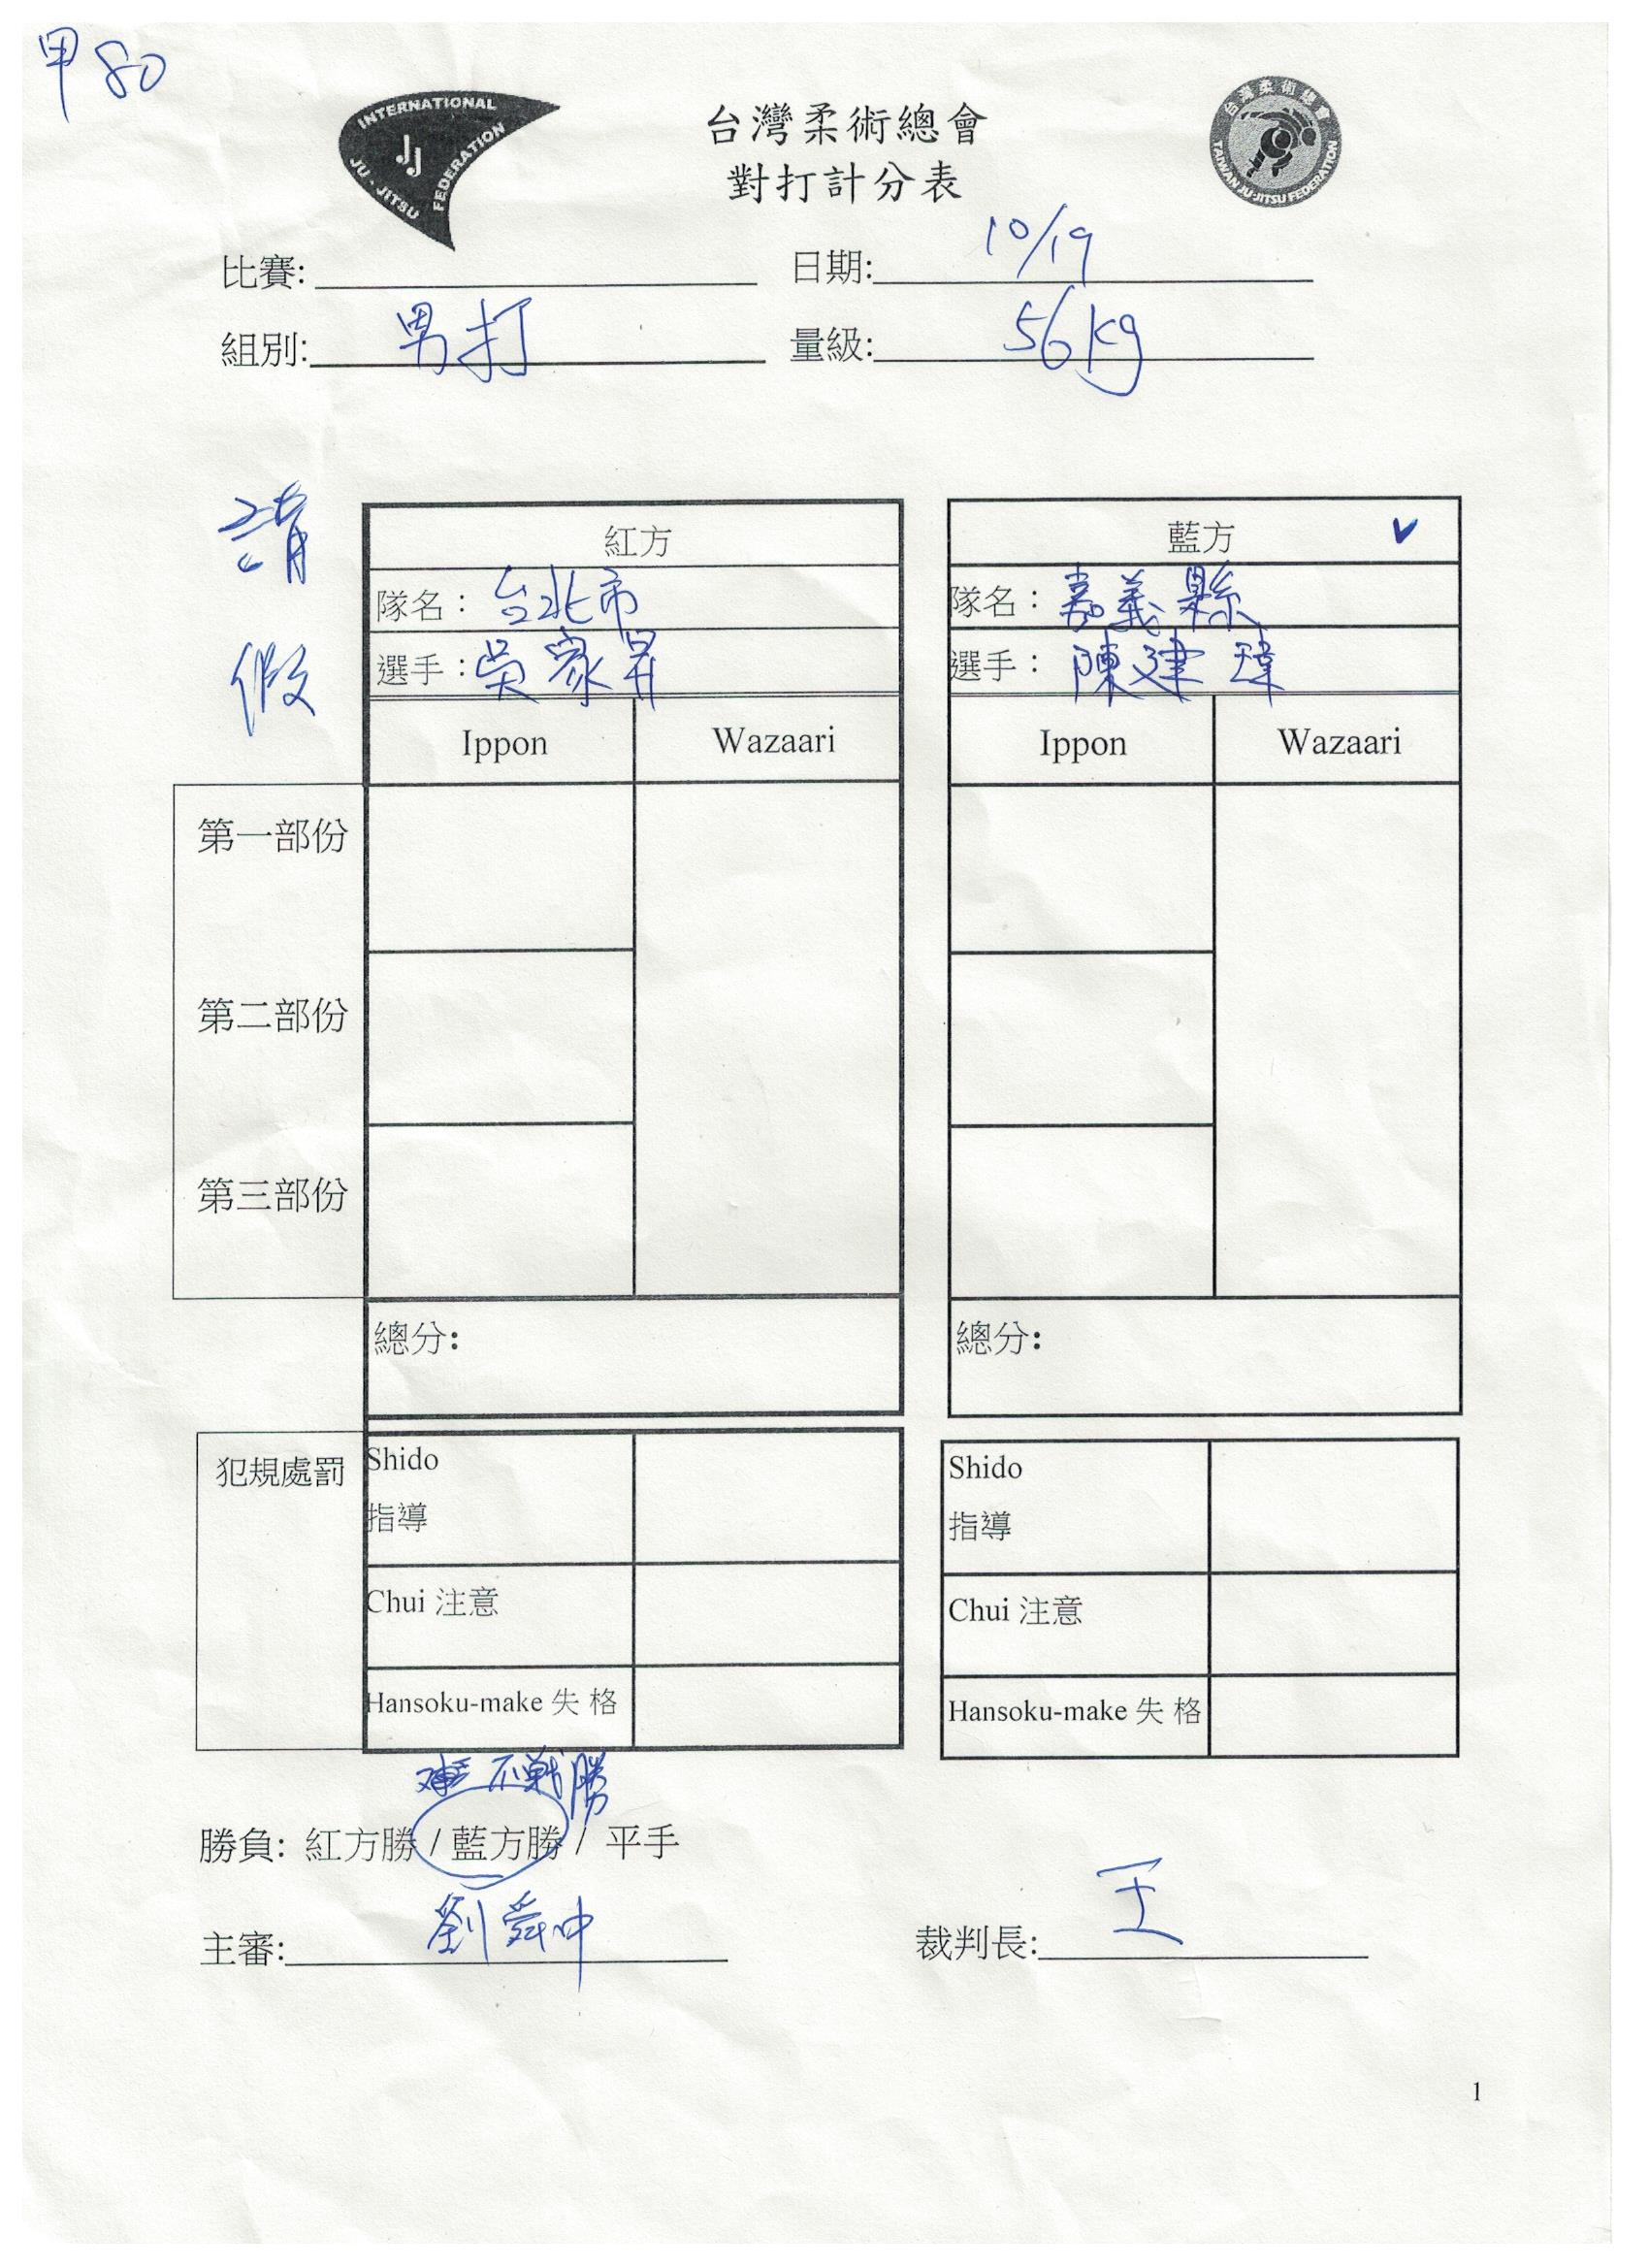 甲80
INTERNATIONAL
JJ
JU-JITSU FEDERATION
台灣柔術總會
對打計分表
台灣柔術總會
TAIWAN JU-JITSU FEDERATION
比賽: 日期: 10/19
組別: 男打 量級: 56kg
請假
紅方 藍方 ✓
隊名：台北市 隊名：嘉義縣
選手：吳家昇 選手：陳建瑋
Ippon Wazaari Ippon Wazaari
第一部份
第二部份
第三部份
總分: 總分:
犯規處罰
Shido Shido
指導 指導
Chui 注意 Chui 注意
Hansoku-make 失 格 Hansoku-make 失 格
不戰勝
勝負: 紅方勝 / 藍方勝 / 平手
主審: 劉舜中 裁判長: 王
1